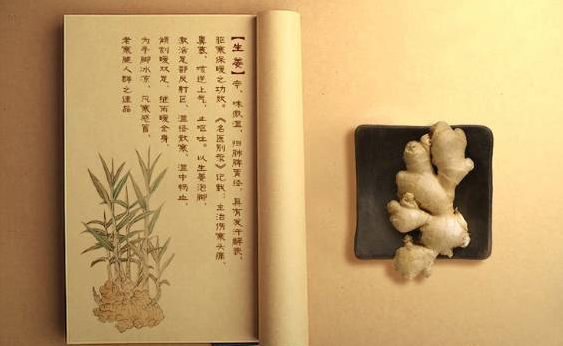 【生姜】辛、味微温，归肺脾胃经，具有发汗解表、
驱寒保暖之功效。《名医别录》记载，主治伤寒头痛、
鼻塞，咳逆上气，止呕吐。以生姜泡脚，
激活足部反射区，温经散寒，温中畅血，
倾刻暖双足，继而暖全身，
为手脚冰凉、风寒感冒、
老寒腿人群之佳品